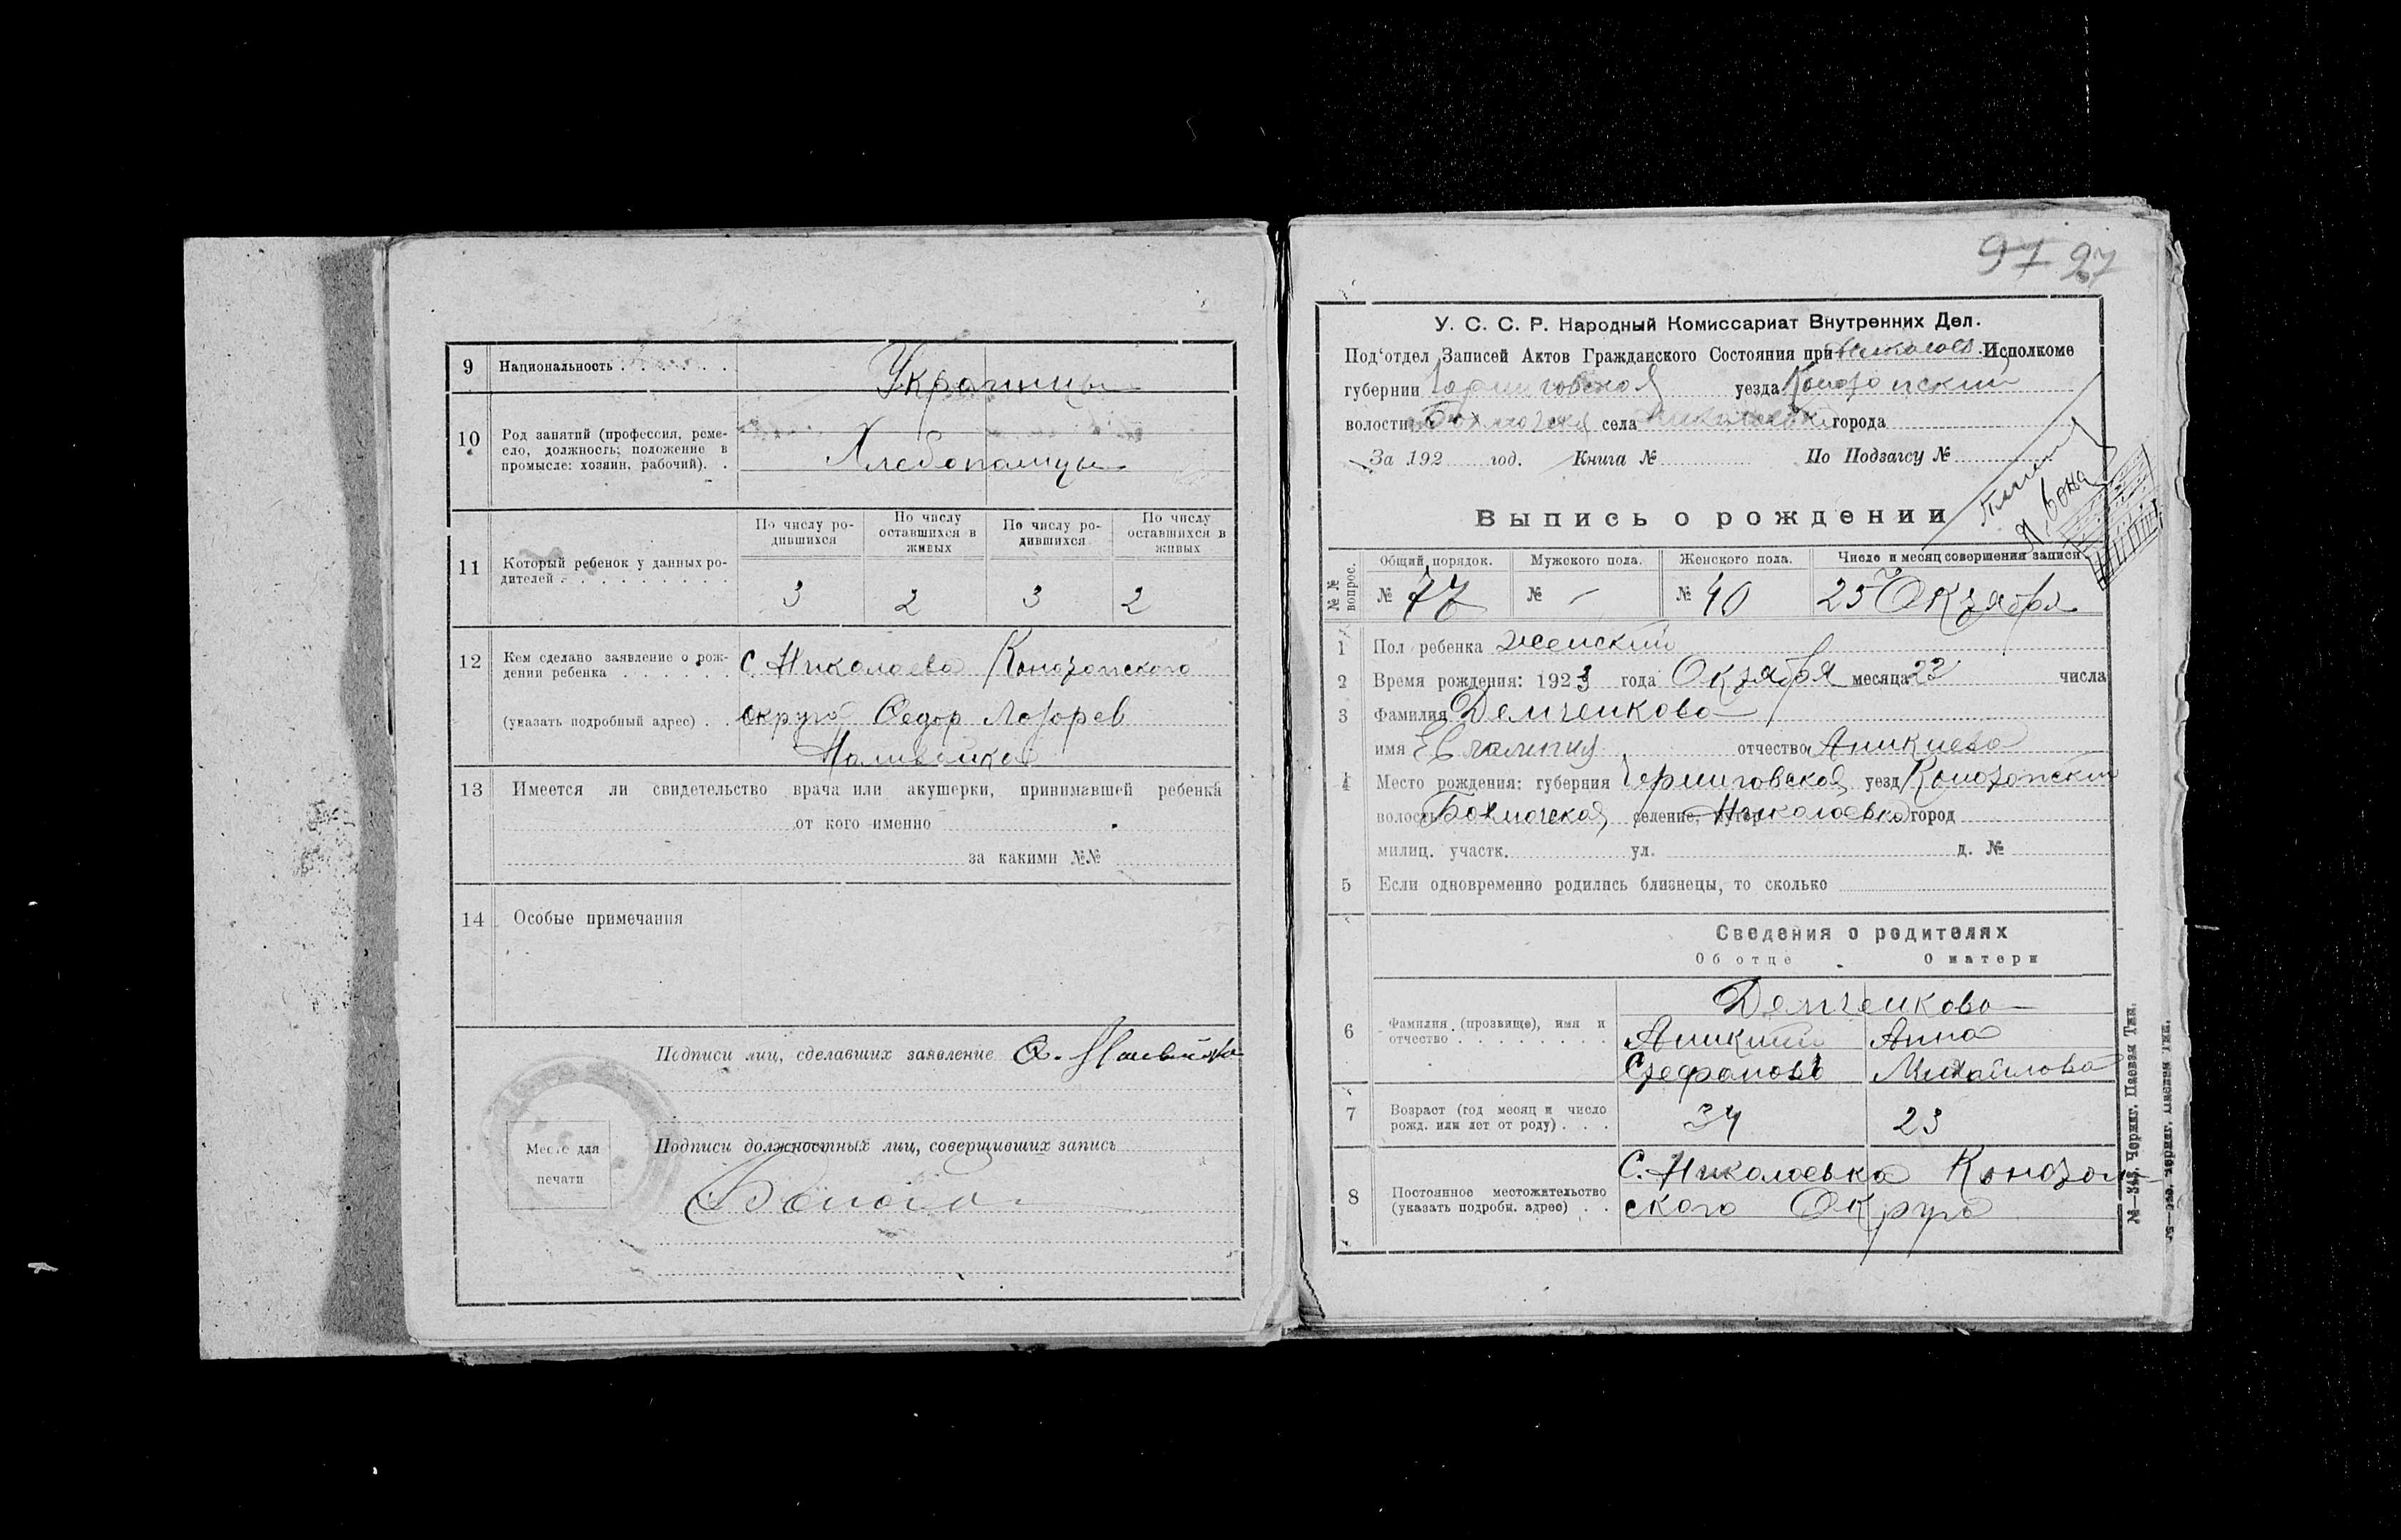 9 Национальность . . . . . . . Украинцы
10 Род занятий (профессия, реме-
сло, должность; положение в
промысле: хозяин, рабочий). .
Хлебопашцы
По числу ро-
дившихся
По числу
оставшихся в
живых
По числу ро-
дившихся
По числу
оставшихся в
живых
11 Который ребенок у данных ро-
дителей . . . . . . . . . .
3 2 3 2
12 Кем сделано заявление о рож-
дении ребенка . . . . . .
С. Николаева Конотопского
(указать подробный адрес) . . округа Федор Лазорев
Наливайко
13 Имеется ли свидетельство врача или акушерки, принимавшей ребенка
от кого именно
за какими №№
14 Особые примечания
Подписи лиц, сделавших заявление
Место для
печати
Подписи должностных лиц, совершивших запись
97 97
У. С. С. Р. Народный Комиссариат Внутренних Дел.
Под'отдел Записей Актов Гражданского Состояния при Николаев. Исполкоме
губернии Черниговской уезда Конотопский
волости Бахмачская села Николаевка города
За 192 год. Книга № По Подзагсу №
Выпись о рождении
№ № вопрос.
Общий порядок. Мужского пола. Женского пола. Число и месяц совершения записи
№ 77 № - № 40 25 Октября
1 Пол ребенка женский
2 Время рождения: 1923 года Октября месяца 22 числа
3 Фамилия Демченкова
имя отчество Аникиева
4 Место рождения: губерния Черниговская уезд Конотопский
волость Бахмачская селение, хутор Николаевка город
милиц. участк. ул. д. №
5 Если одновременно родились близнецы, то сколько
Сведения о родителях
Об отце О матери
6 Фамилия (прозвище), имя и
отчество . . . . . . . .
Демченкова
Аникий Анна
Стефановъ Михайлова
7 Возраст (год месяц и число
рожд. или лет от роду) . . .
34 23
8 Постоянное местожительство
(указать подробн. адрес) . .
С. Николаевка Конотоп-
ского Округа
№—343, Черниг. Паевая Тип.